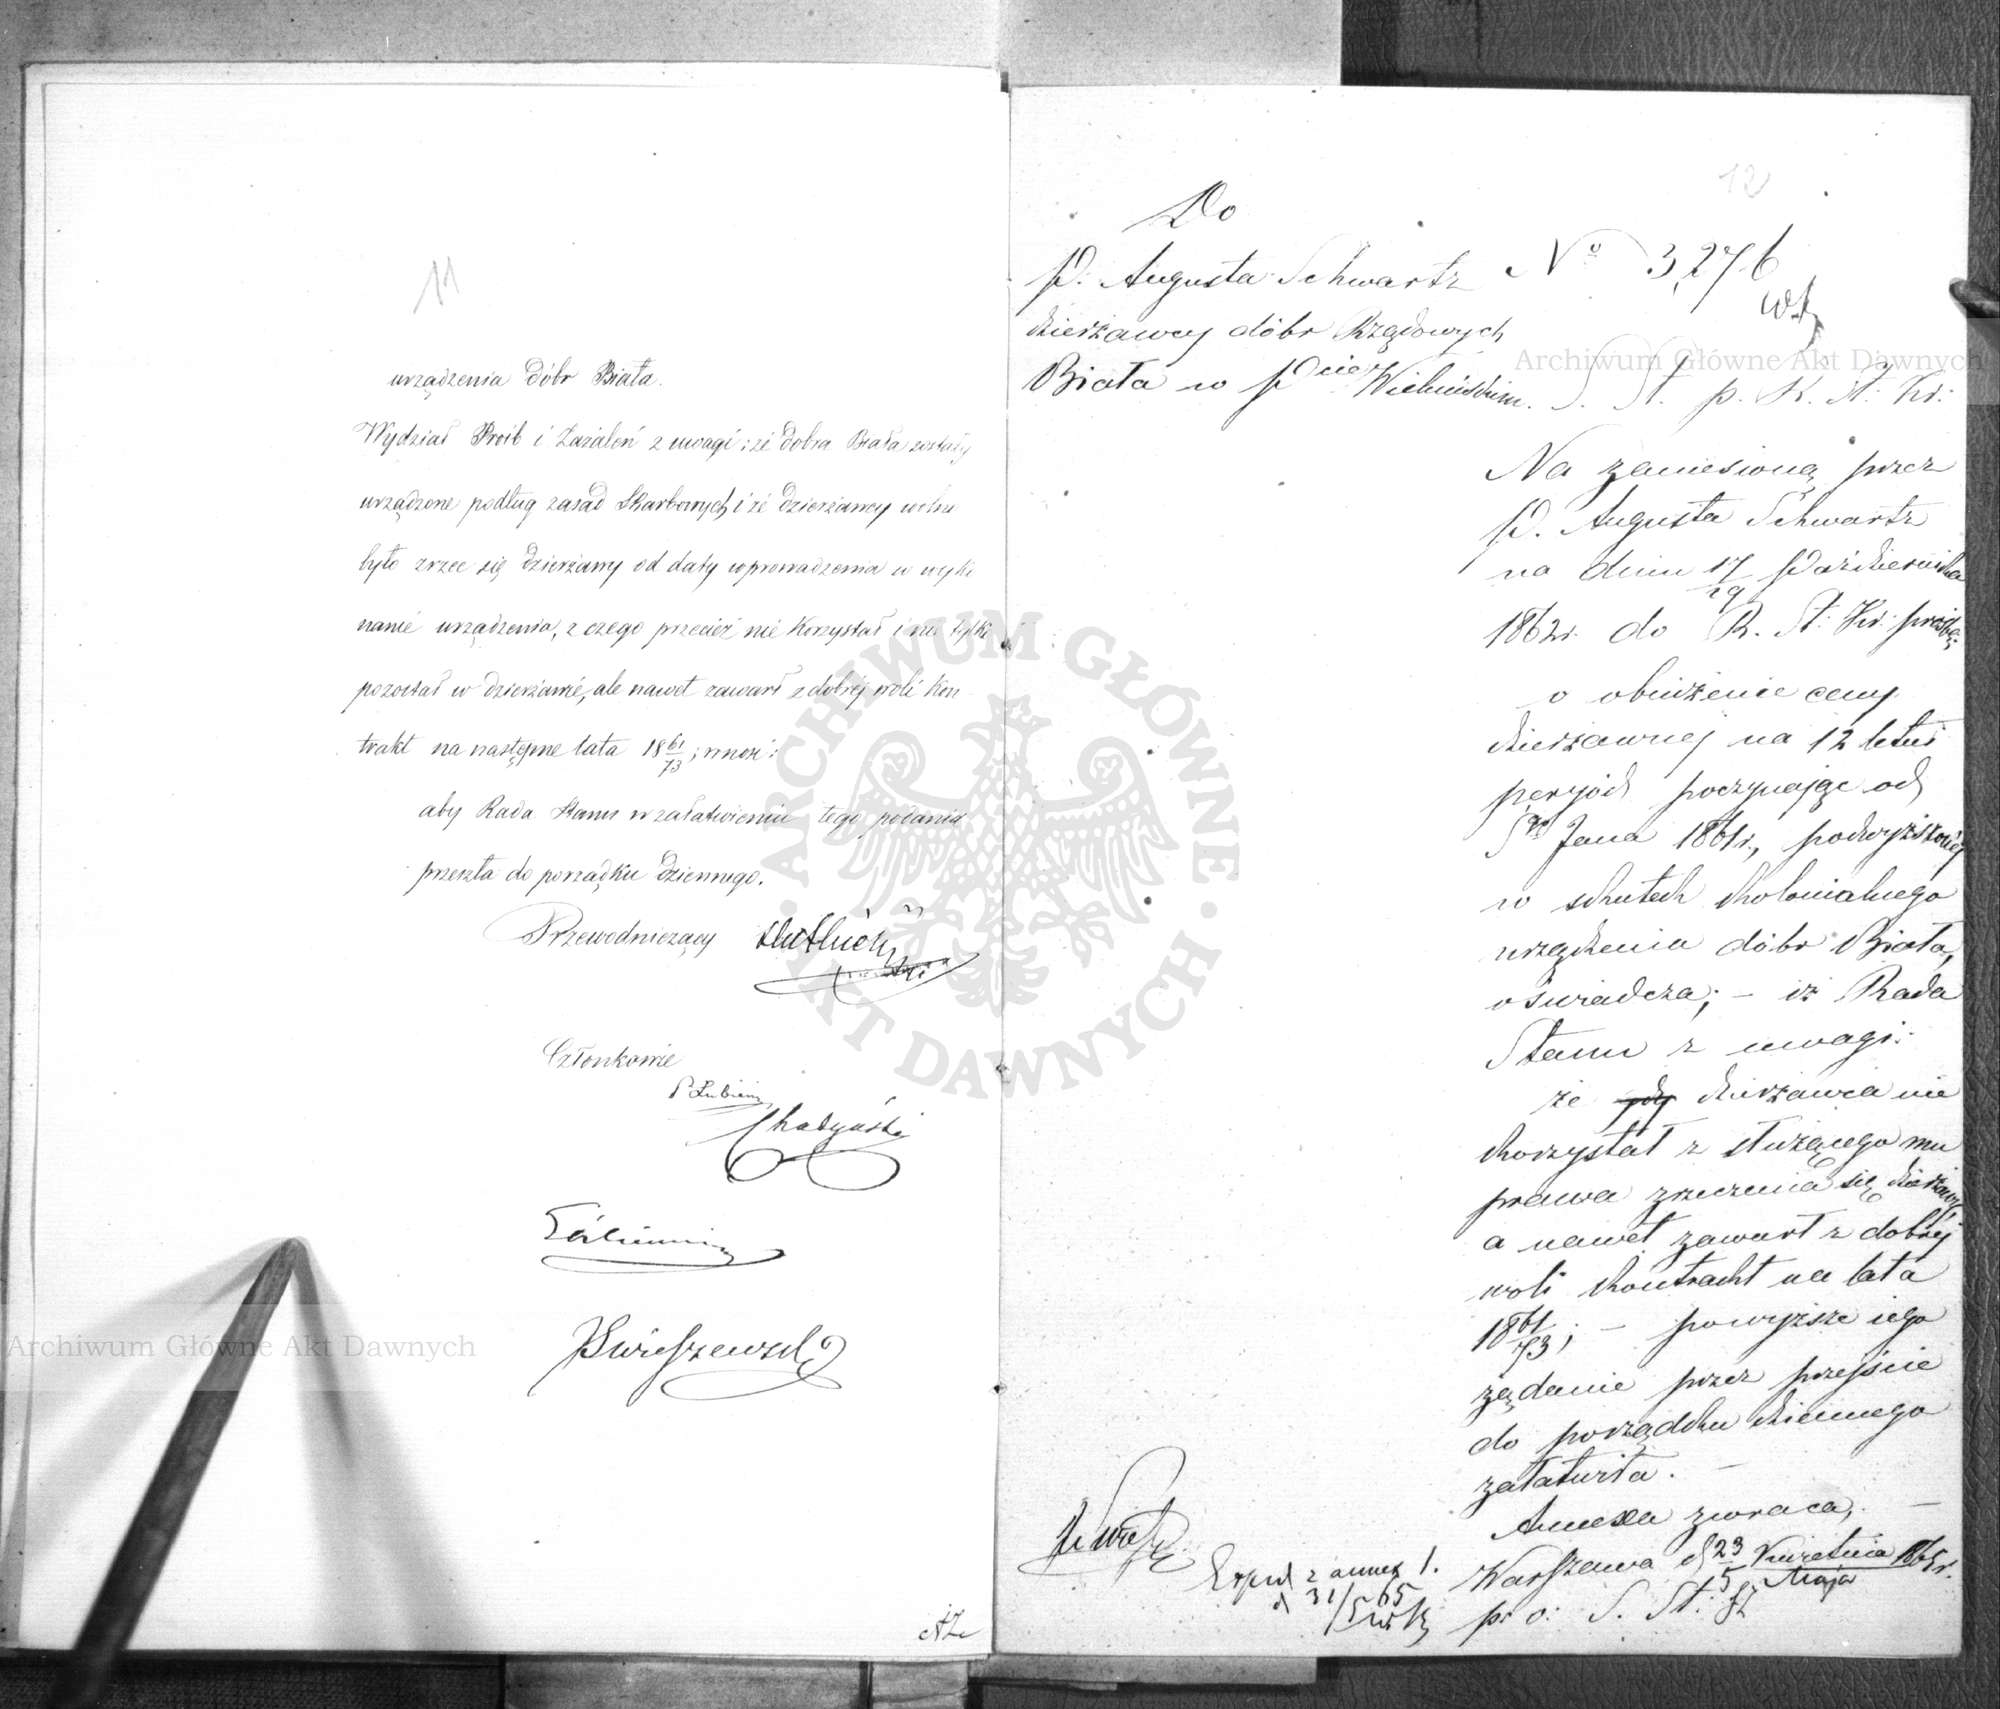 11
urządzenia dóbr Biała.
Wydział Prośb i Zażaleń z uwagi: że dobra Biała zostały
urządzone podług zasad Skarbowych, i że dzierżawcy wolno
było zrzec się dzierżawy od daty wprowadzenia w wyko
nanie urządzenia, z czego przecież nie korzystał i nie tylko
pozostał w dzierżawie, ale nawet zawarł z dobrej woli kon
trakt na następne lata 1861/73; wnosi:
aby Rada Stanu w załatwieniu tego podania
przeszła do porządku dziennego.
Przewodniczący
Członkowie
P Lubień
AZ
12
Do
P. Augusta Schwartz
dzierżawcy dóbr Rządowych
Biała w Pcie Wieluńskim.
No 3,276
S. St. p. R. St. Kr:
Na zaniesioną przez
P. Augusta Schwartz
na dniu 17/29 Października
1862r. do R. St. Kr: prośbę
o obniżenie ceny
dzierżawnej na 12 letni
peryod poczynając od
Sgo Jana 1861r., podwyższonej
w skutek kolonialnego
urządzenia dóbr Biała,
oświadcza; – iż Rada
Stanu z uwagi:
że dzierżawca nie
korzystał z służącego mu
prawa zrzeczenia się dzierżawy
a nawet zawarł z dobrej
woli kontrakt na lata
1861/73; – powyższe iego
żądanie przez przejście
do porządku dziennego
załatwiła. –
Annexa zwraca, –
Warszawa d 23/5 Kwietnia/Maja 1865r.
p. o: S. St:
Exped z annex 1.
d 31/5 65
Archiwum Główne Akt Dawnych
Archiwum Główne Akt Dawnych
ARCHIWUM GŁÓWNE AKT DAWNYCH